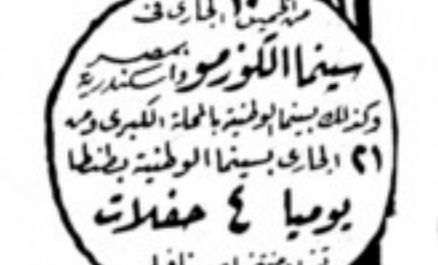 من الخميس ١٠ الجارى فى
سينما الكوزمو بمصر واسكندرية
وكذلك بسينما الوطنية بالمحلة الكبرى ومن
٢١ الجارى بسينما الوطنية بطنطا
يوميا ٤ حفلات